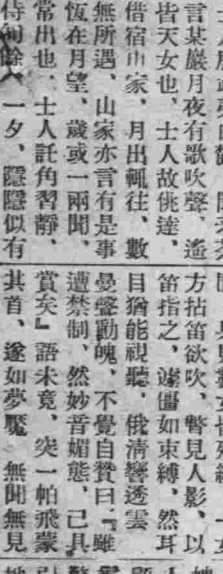 言某巖月夜有歌吹聲，遙
皆天女也，士人故佻達，
借宿山家，月出輒往，數
無所遇，山家亦言有是事
恆在月望，歲或一兩聞，
常出也，士人託角習靜，
待旬餘，一夕，隱隱似有
方拈笛欲吹，瞥見人影，以
笛指之，遽僵如束縛，然耳
目猶能視聽，俄清響透雲
曼聲動魄，不覺自贊曰：『雖
遭禁制，然妙音媚態，己具
賞矣』語未竟，突一帕飛蒙
其首，遂如夢魘　無聞無見